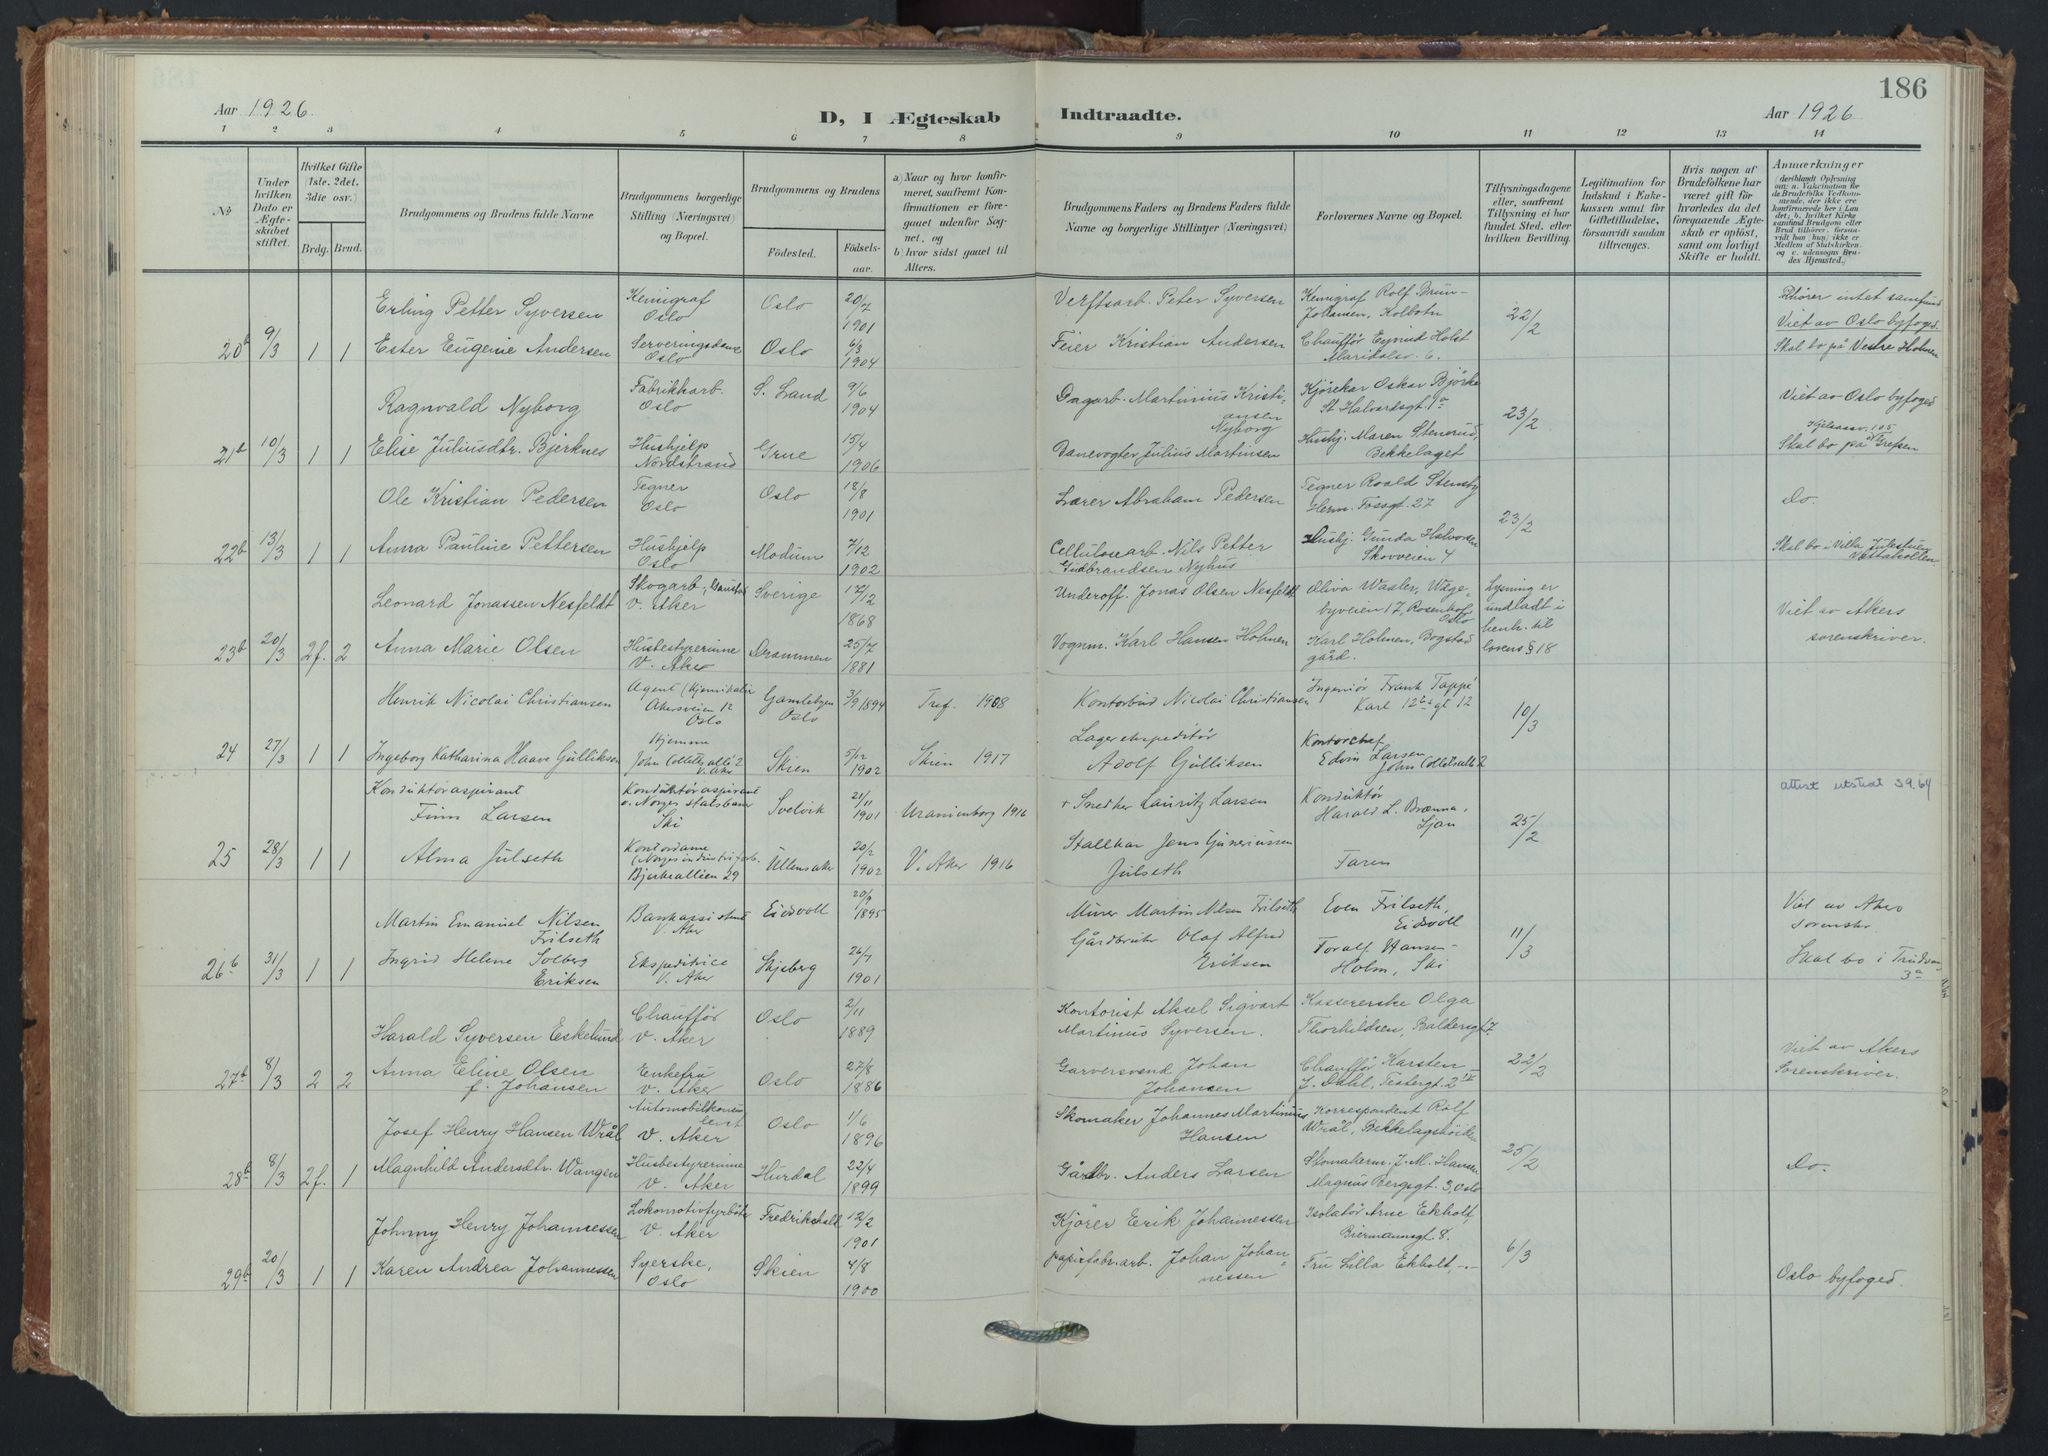 186
Aar 1926.
D, I Ægteskab Indtraadte.
Aar 1926
1 2 3 4 5 6 7 8 9 10 11 12 13 14
№
Under hvilken Dato er Ægteskabet stiftet.
Hvilket Gifte (1ste, 2det, 3die osv.)
Brdg. Brud.
Brudgommens og Brudens fulde Navne
Brudgommens borgerlige Stilling (Næringsvei) og Bopæl.
Brudgommens og Brudens
Fødested. Fødselsaar.
a) Naar og hvor konfirmeret, saafremt Konfirmationen er foregaaet udenfor Sognet, og
b) hvor sidst gaaet til Alters.
Brudgommens Faders og Brudens Faders fulde Navne og borgerlige Stillinger (Næringsvei)
Forlovernes Navne og Bopæl.
Tillysningsdagene eller, saafremt Tillysning ei har fundet Sted, efter hvilken Bevilling.
Legitimation for Indskud i Enkekassen samt for Giftetilladelse, forsaavidt saadan tiltrænges.
Hvis nogen af Brudefolkene har været gift før hvorledes da det foregaaende Ægteskab er opløst, samt om lovligt Skifte er holdt.
Anmærkninger
(deriblandt Oplysning om: a. Vakcination for de Brudefolks Vedkommende, der ikke ere konfirmerede her i Landet; b. hvilket Kirkesamfund Brudgom eller Brud tilhører, forsaavidt han (hun) ikke er Medlem af Statskirken og v. udensogns Brudes Hjemsted.)
Erling Petter Syversen Kemigraf Oslo Oslo 20/7 1901 Verftsarb. Peter Syversen Kemigraf Rolf Brun-Johansen, Kolbotn 22/2 intet samfund Viet av Oslo byfoged.
20b 9/3 1 1 Ester Eugenie Andersen Serveringsdame Oslo Oslo 6/3 1904 Feier Kristian Andersen Chauffør Eyvind Holst Maridalsv. 6. Skal bo på Vestre Holmen
Ragnvald Nyborg Fabrikkarb. Oslo S. Land 9/6 1904 Dagarb. Martinius Kristiansen Nyborg Kjørekar Oskar Bjørke St Halvardsgt. 1a 23/2 Viet av Oslo byfoged
21b 10/3 1 1 Elise Juliusdtr. Bjerknes Hushjelp Nordstrand Grue 15/4 1906 Banevogter Julius Martinsen Hushj. Maren Stenerud, Bekkelaget Skal bo på Grefsen
Ole Kristian Pedersen Tegner Oslo Oslo 18/8 1901 Lærer Abraham Pedersen Tegner Roald Stensby Herm. Fossgt. 27 23/2 Do.
22b 13/3 1 1 Anna Pauline Pettersen Hushjelp Oslo Modum 7/12 1902 Cellulosearb. Nils Petter Gudbrandsen Nyhus Hushj. Gunda Halvorsen Skovveien 4 Skal bo i Villa
Leonard Jonassen Nesfeldt Skogarb., V. Aker Sverige 17/12 1868 Underoff. Jonas Olsen Nesfeldt Oliva Waaler, Wågebyveien 17, Rosenhof, Oslo Lysning er undladt i henh. til lovens § 18 Viet av Akers sorenskriver.
23b 20/3 2f. 2 Anna Marie Olsen Husbestyrerinne V. Aker Drammen 25/7 1881 Vognm. Karl Hansen Holmen Karl Holmen, Bogstad gård.
Henrik Nicolai Christiansen Agent (Kjemikalier Akersveien 12 Oslo Gamlebyen Oslo 3/9 1894 Tref. 1908 Kontorbud Nicolai Christiansen Ingeniør Frank Tappé Karl 12tes gt 12 10/3
24 27/3 1 1 Ingeborg Katharina Haave Gulliksen Hjemme John Colletts allé 2 V. Aker Skien 5/12 1902 Skien 1917 Lagerekspeditør Adolf Gulliksen Kontorchef Edvin Larsen John Colletsallé 2
Konduktøraspirant Finn Larsen Konduktøraspirant v. Norges statsbaner Ski Svelvik 21/11 1901 Uranienborg 1916 + Snedker Lauritz Larsen Konduktør Harald L. Brænna, Ljan 25/2 attest utstedt 3.9.64
25 28/3 1 1 Alma Julseth Kontordame (Norges industriforb. Bjerkealléen 29 Ullensaker 20/2 1902 V. Aker 1916 Stallkar Jens Guneriussen Julseth Faren
Martin Emanuel Nilsen Frilseth Bankassistent V. Aker Eidsvoll 20/9 1895 Murer Martin Nilsen Frilseth Even Frilseth, Eidsvoll 11/3 Viet av Aker Sorenskr.
26b 31/3 1 1 Ingrid Helene Solberg Eriksen Ekspeditrice V. Aker Skjeberg 26/7 1901 Gårdbruker Olaf Alfred Eriksen Toralf Hansen-Holm, Ski Skal bo i Trudvang 3a
Harald Syversen Eskelund Chauffør V. Aker Oslo 2/11 1889 Kontorist Aksel Sigvart Martinus Syversen. Kassererske Olga Thorkildsen, Baldersgt 7. 22/2 Viet av Akers Sorenskriver.
27b 8/3 2 2 Anna Eline Olsen f. Johansen Enkefru V. Aker Oslo 27/8 1886 Garversvend Johan Johansen Chauffør Karsten J. Dahl,
Josef Henry Hansen Wrål Automobilkonsulent V. Aker Oslo 1/6 1896 Skomaker Johannes Martinius Hansen Korrespondent Rolf Wrål, Bekkelagshöiden 25/2
28b 8/3 2f. 1 Magnhild Andersdtr. Wangen Husbestyrerinne V. Aker Hurdal 22/4 1899 Gårdbr. Anders Larsen Skomakerm. J. M. Hansen Magnus Bergsgt. 3, Oslo Do.
Johnny Henry Johannessen Lokomotivfyrbøter V. Aker Fredrikshald 12/2 1901 Kjører Erik Johannessen Isolatør Arne Ekholt, Biermannsgt 8. 6/3
29b 20/3 1 1 Karen Andrea Johannessen Syerske, Oslo Skien 4/8 1900 papirfabr.arb. Johan Johannessen Fru Lilla Ekholt, -"- Oslo byfoged.